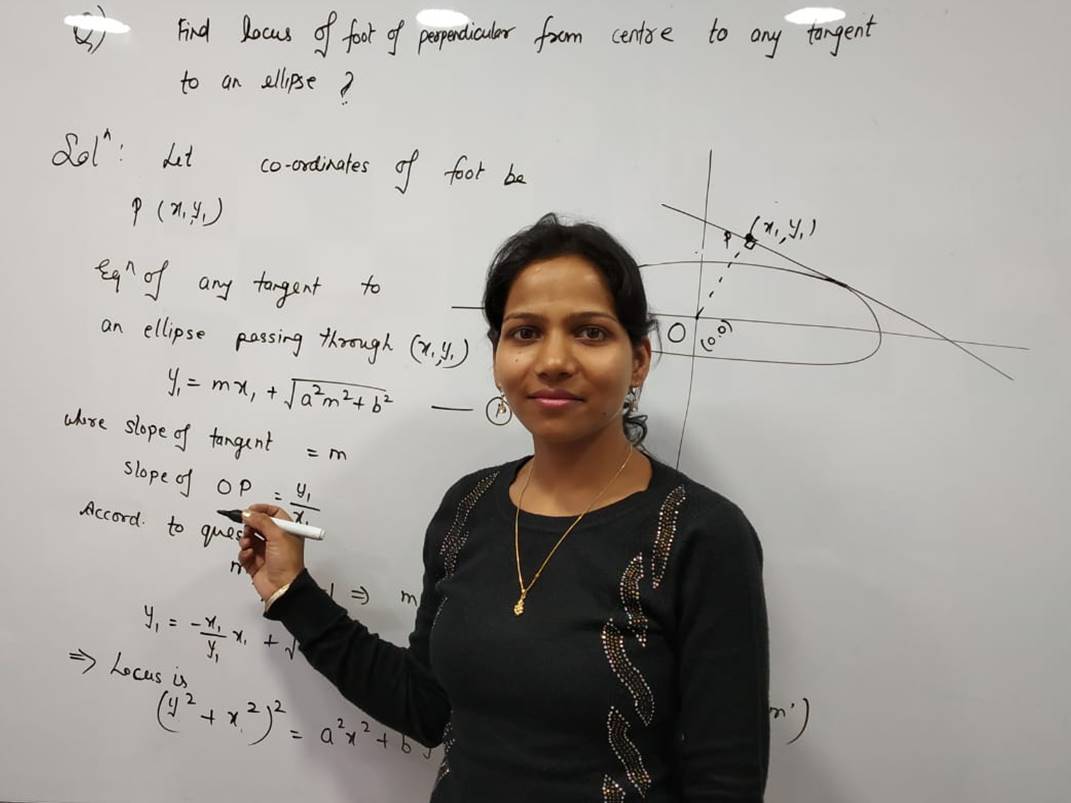 Q) Find locus of foot of perpendicular from centre to any tangent
to an ellipse ?
Solⁿ: Let co-ordinates of foot be
P (x₁,y₁)
Eqⁿ of any tangent to
an ellipse passing through (x₁,y₁)
y₁ = mx₁ + √(a²m² + b²) — ①
where slope of tangent = m
slope of OP = y₁/x₁
Accord. to ques
m ⇒ m
y₁ = -x₁/y₁ x₁ + √
⇒ Locus is
(y² + x²)² = a²x² + b
P (x₁,y₁)
O (0,0)